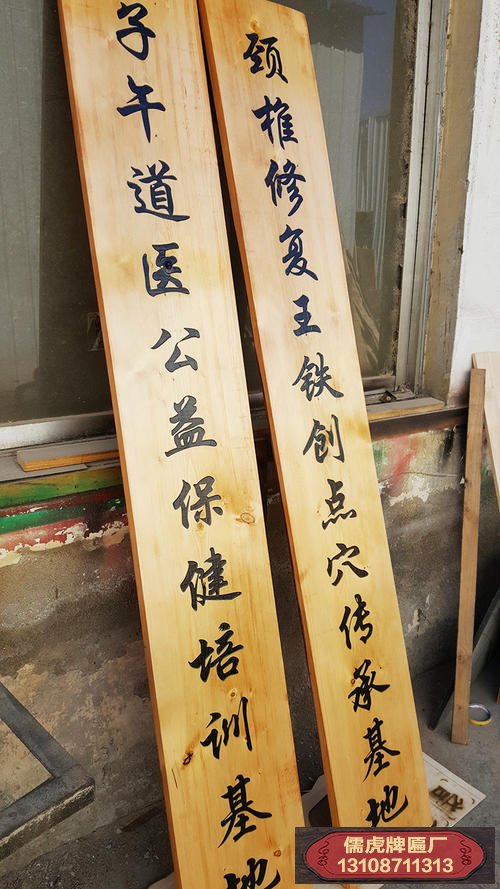 子午道医公益保健培训基地
颈推修复王铁创点穴传承基地
儒虎牌匾厂
13108711313